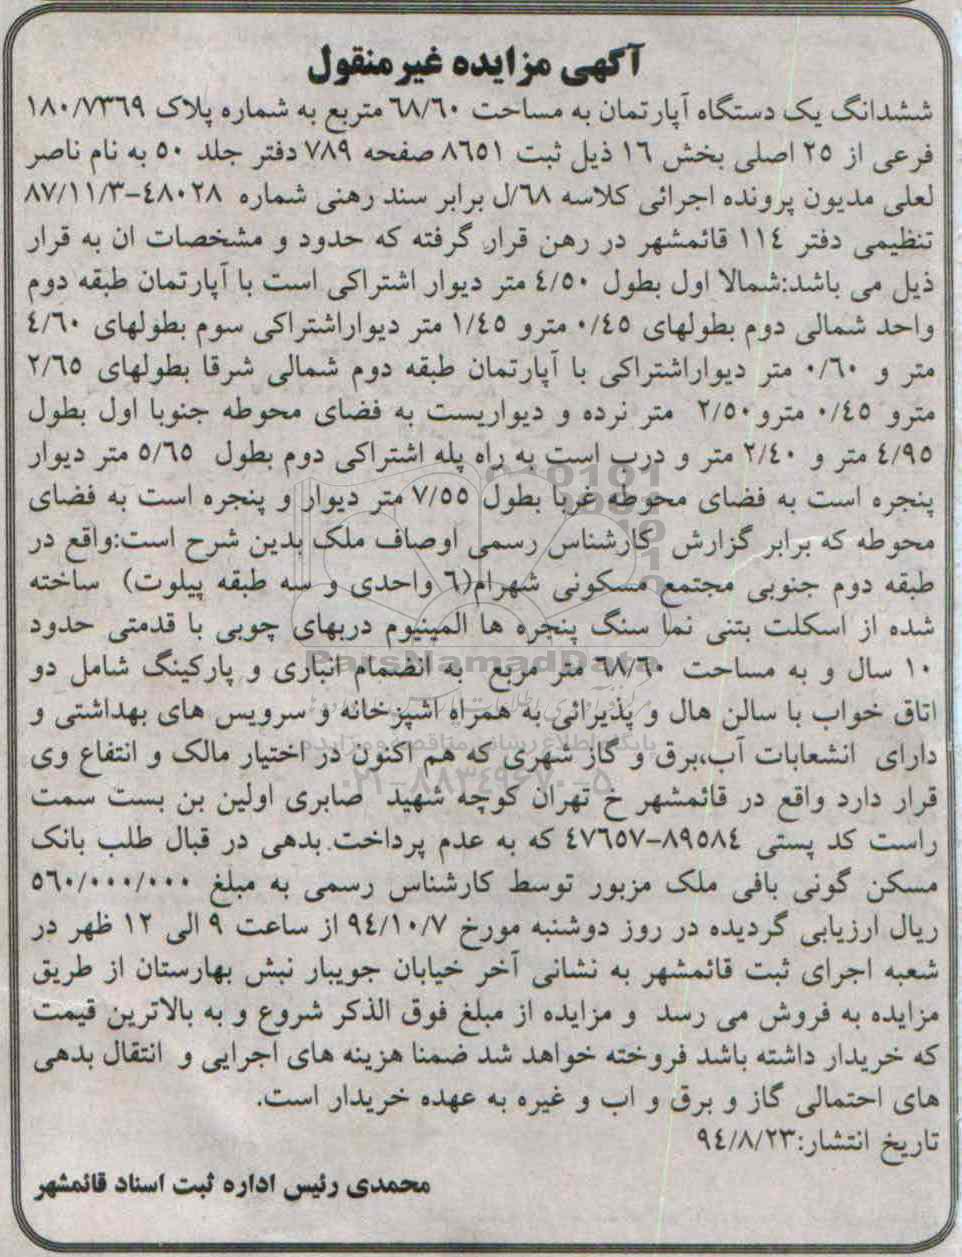 آگهی مزایده غیرمنقول
ششدانگ یک دستگاه آپارتمان به مساحت ٦٨/٦٠ متربع به شماره پلاک ١٨٠/٧٣٦٩
فرعی از ٢٥ اصلی بخش ١٦ ذیل ثبت ٨٦٥١ صفحه ٧٨٩ دفتر جلد ٥٠ به نام ناصر
لعلی مدیون پرونده اجرائی کلاسه ٦٨/ل برابر سند رهنی شماره ٤٨٠٢٨-٨٧/١١/٣
تنظیمی دفتر ١١٤ قائمشهر در رهن قرار گرفته که حدود و مشخصات ان به قرار
ذیل می باشد:شمالا اول بطول ٤/٥٠ متر دیوار اشتراکی است با آپارتمان طبقه دوم
واحد شمالی دوم بطولهای ٠/٤٥ مترو ١/٤٥ متر دیواراشتراکی سوم بطولهای ٤/٦٠
متر و ٠/٦٠ متر دیواراشتراکی با آپارتمان طبقه دوم شمالی شرقا بطولهای ٢/٦٥
مترو ٠/٤٥ مترو ٢/٥٠ متر نرده و دیواریست به فضای محوطه جنوبا اول بطول
٤/٩٥ متر و ٢/٤٠ متر و درب است به راه پله اشتراکی دوم بطول ٥/٦٥ متر دیوار
پنجره است به فضای محوطه غربا بطول ٧/٥٥ متر دیوار و پنجره است به فضای
محوطه که برابر گزارش کارشناس رسمی اوصاف ملک بدین شرح است:واقع در
طبقه دوم جنوبی مجتمع مسکونی شهرام(٦ واحدی و سه طبقه پیلوت) ساخته
شده از اسکلت بتنی نما سنگ پنجره ها المینیوم دربهای چوبی با قدمتی حدود
١٠ سال و به مساحت ٦٨/٦٠ متر مربع به انضمام انباری و پارکینگ شامل دو
اتاق خواب با سالن هال و پذیرائی به همراه اشپزخانه و سرویس های بهداشتی و
دارای انشعابات آب،برق و گاز شهری که هم اکنون در اختیار مالک و انتفاع وی
قرار دارد واقع در قائمشهر خ تهران کوچه شهید صابری اولین بن بست سمت
راست کد پستی ٨٩٥٨٤-٤٧٦٥٧ که به عدم پرداخت بدهی در قبال طلب بانک
مسکن گونی بافی ملک مزبور توسط کارشناس رسمی به مبلغ ٥٦٠/٠٠٠/٠٠٠
ریال ارزیابی گردیده در روز دوشنبه مورخ ٩٤/١٠/٧ از ساعت ٩ الی ١٢ ظهر در
شعبه اجرای ثبت قائمشهر به نشانی آخر خیابان جویبار نبش بهارستان از طریق
مزایده به فروش می رسد و مزایده از مبلغ فوق الذکر شروع و به بالاترین قیمت
که خریدار داشته باشد فروخته خواهد شد ضمنا هزینه های اجرایی و انتقال بدهی
های احتمالی گاز و برق و اب و غیره به عهده خریدار است.
تاریخ انتشار:٩٤/٨/٢٣
محمدی رئیس اداره ثبت اسناد قائمشهر
ParsNamadData
پایگاه اطلاع رسانی مناقصه و مزایده
۰۲۱-۸۸۳۴۹۶۷۰-۵